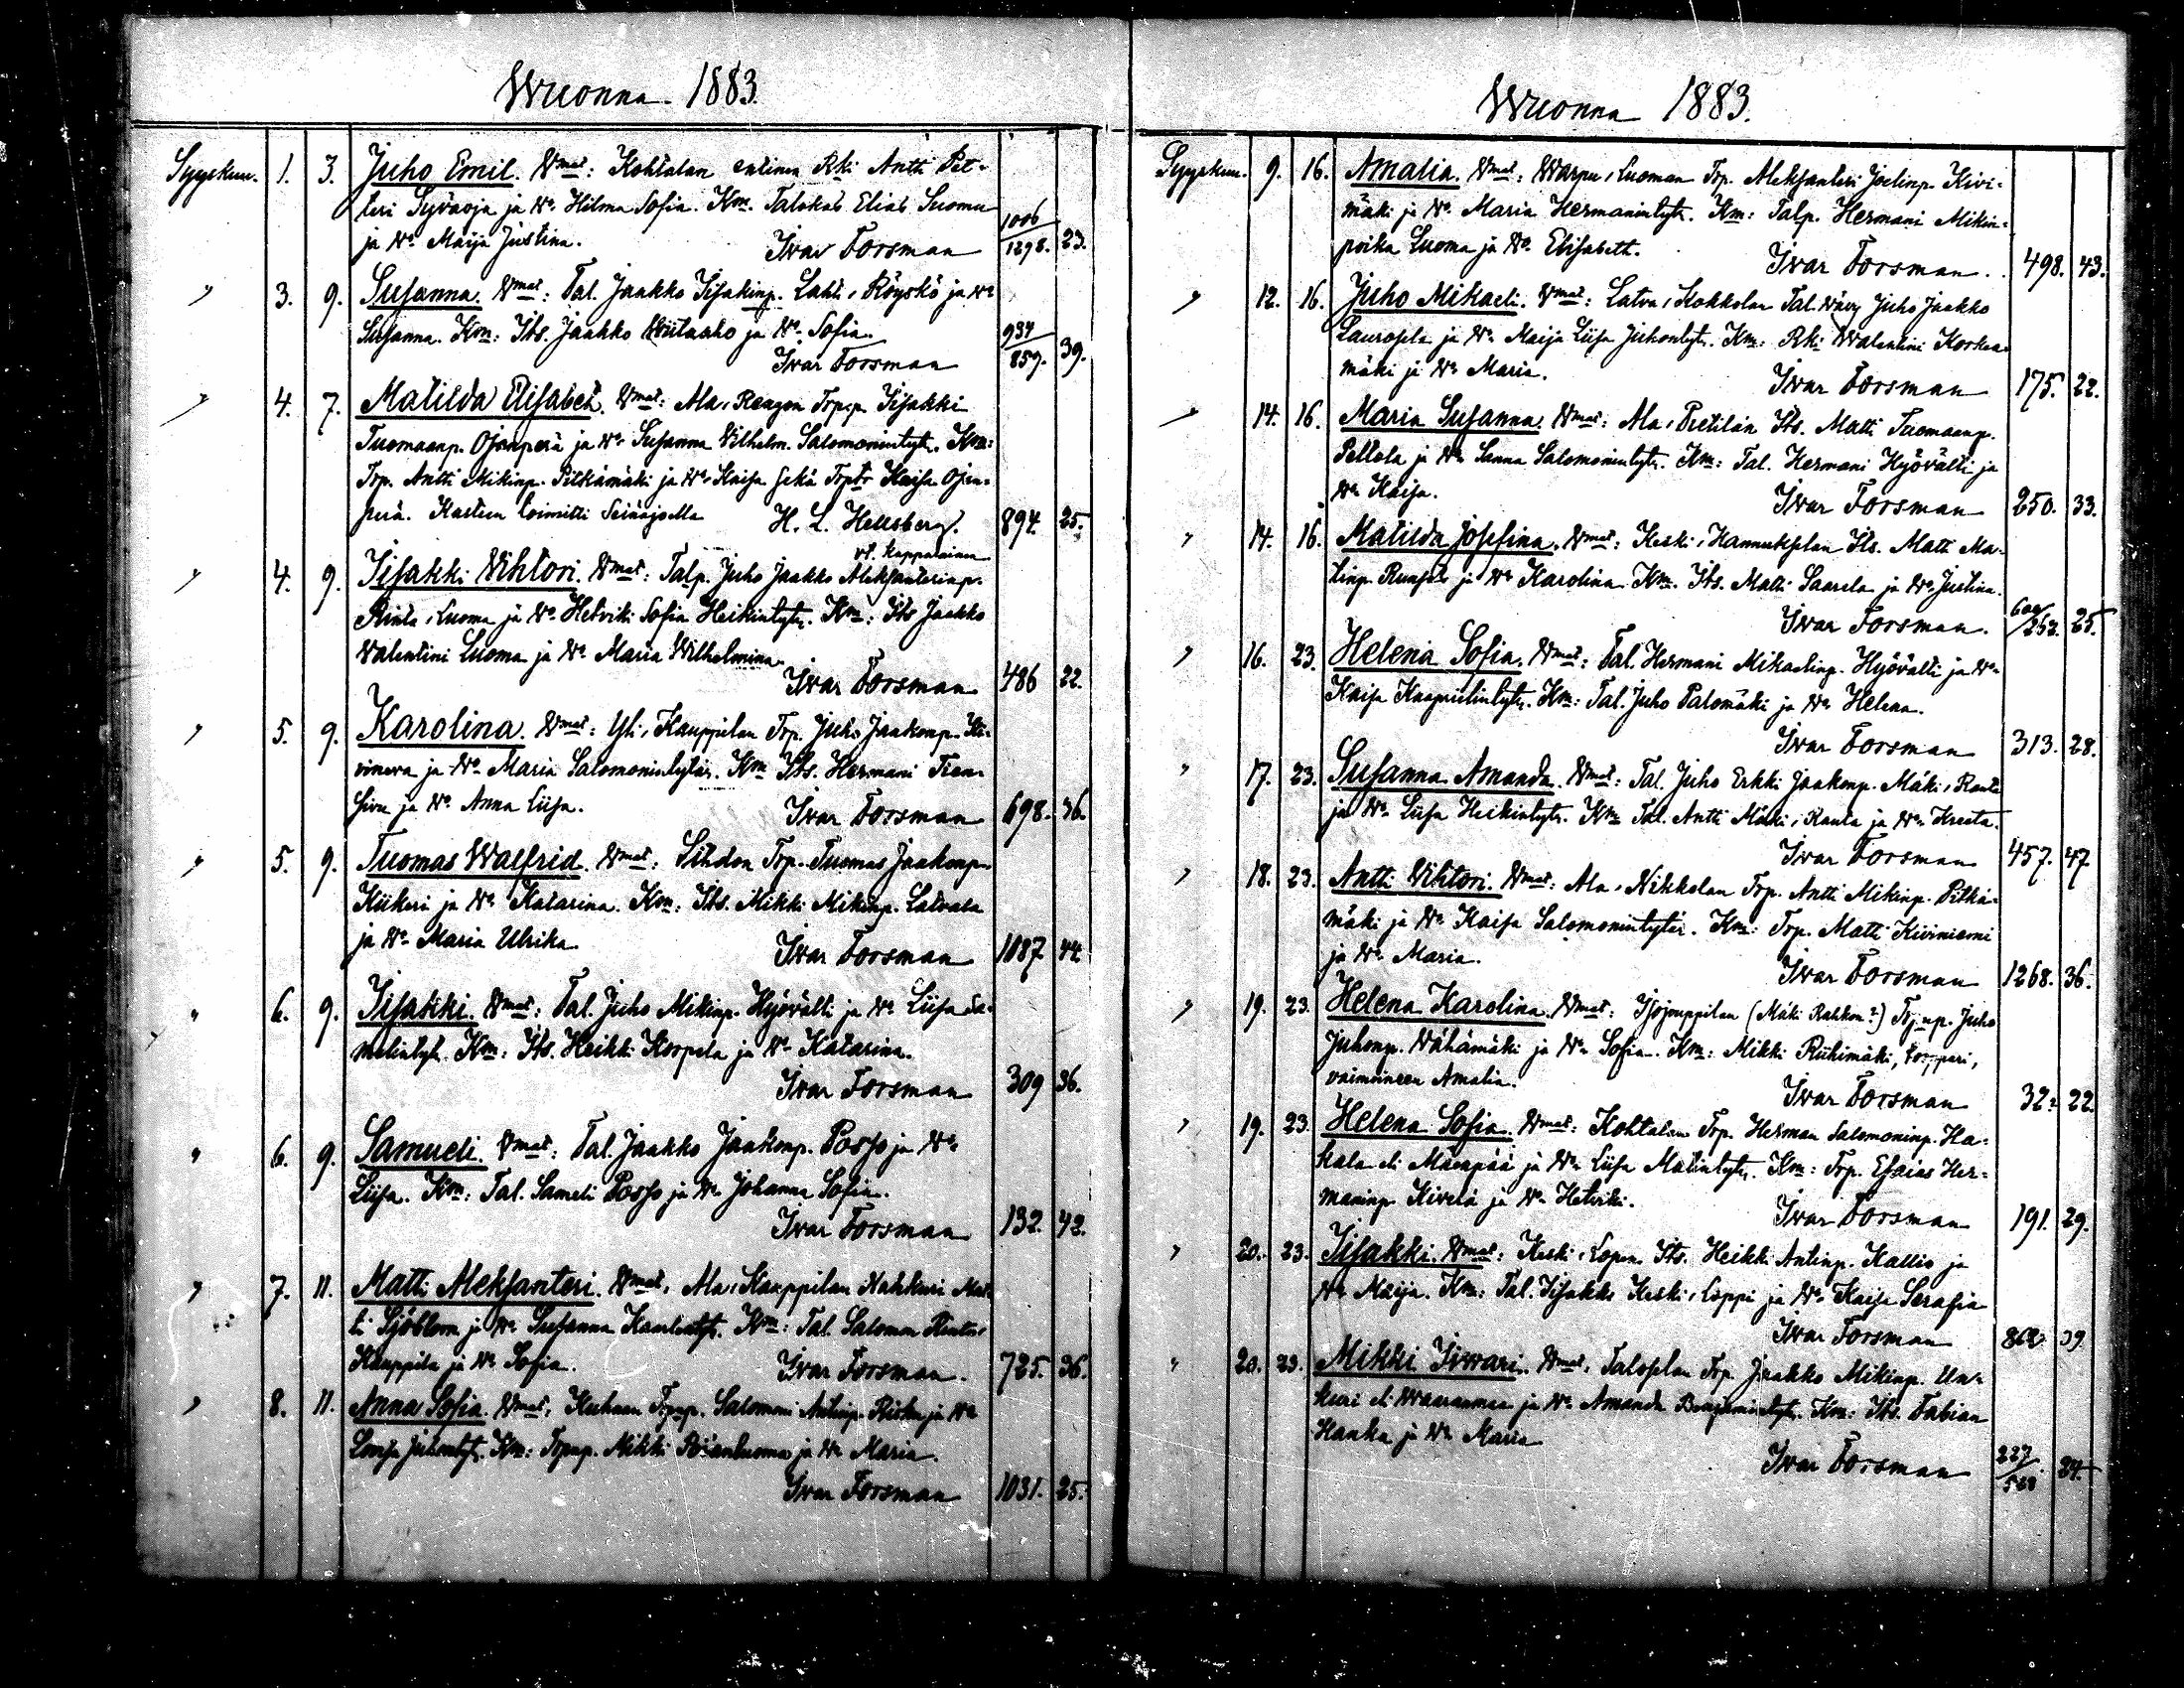 Wuonna 1883.
Syyskuu. 1. 3. Juho Emil. Vmat: Kohtalan entinen Rki Antti Pet-
teri Syväoja ja Vo Hilma Sofia. Km. Talokas Elias Suomu
ja Vo Maija Justina. Ivar Forsman 1006/1298. 23.
" 3. 9. Susanna. Vmat: Tal. Jaakko Iisakinp. Lahti, Röyskö ja Vo
Susanna. Km: Its. Jaakko Viitaaho ja Vo Sofia.
Ivar Forsman 934/859. 39.
" 4. 7. Matilda Elisabet. Vmat: Ala, Reagon Trp.p. Iisakki
Tuomaanp. Ojanperä ja Vo Susanna Vilhelm. Salomonintytr. Km:
Trp. Antti Mikinp. Pitkämäki ja Vo Kaisa sekä Trptr Kaisa Ojan-
perä. Kasteen toimitti Seinäjoella H. L. Hellsberg. 894. 25.
vt. kappalainen
" 4. 9. Iisakki Vihtori. Vmat: Talp. Juho Jaakko Aleksanterinp.
Rinta, Luoma ja Vo Hetviki Sofia Heikintytr. Km: Its Jaakko
Valentini Luoma ja Vo Maria Wilhelmina.
Ivar Forsman 486 22.
" 5. 9. Karolina. Vmat: Yli, Kauppilan Trp. Juho Jaakonp. Ki-
vineva ja Vo Maria Salomonintytär. Km Its. Hermani Tien-
sivu ja Vo Anna Liisa. Ivar Forsman 698. 36.
" 5. 9. Tuomas Walfrid. Vmat: Sihdon Trp. Tuomas Jaakonp.
Kiikeri ja Vo Katarina. Km: Its. Mikki Mikinp. Latvala
ja Vo Maria Ulrika. Ivar Forsman 1087 44.
" 6. 9. Iisakki. Vmat: Tal. Juho Mikinp. Hyövälti ja Vo Liisa Sa-
melintytr. Km: Its. Heikki Korpela ja Vo Katarina.
Ivar Forsman 309 36.
" 6. 9. Samueli. Vmat: Tal. Jaakko Jaakonp. Posso ja Vo
Liisa. Km: Tal. Sameli Posso ja Vo Johanna Sofia.
Ivar Forsman 132. 42.
" 7. 11. Matti Aleksanteri. Vmat: Ala, Kauppilan Nahkuri Mat-
ti Sjöblom ja Vo Susanna Kaarlentytr. Km: Tal. Salomon Rinta,
Kauppila ja Vo Sofia. Ivar Forsman. 725. 36.
" 8. 11. Anna Sofia. Vmat: Trpnp. Salomoni Antinp. ja Vo
Loviisa Juhontytr. Km: Trpnp. Mikki ja Vo Maria.
Ivar Forsman 1031. 25.
Wuonna 1883.
Syyskuu. 9. 16. Amalia. Vmat: Warpu, Luoman Trp. Aleksanteri Joelinp. Kivi-
mäki ja Vo Maria Hermanintytr. Km: Talp. Hermani Mikin-
poika Luoma ja Vo Elisabeth. Ivar Forsman. 498. 43.
" 12. 16. Juho Mikaeli. Vmat: Latva, Kokkolan Tal. Vävy Juho Jaakko
Laurosela ja Vo Maija Liisa Juhontytr. Km: Rki Walentini Korkea-
mäki ja Vo Maria. Ivar Forsman 175. 22.
" 14. 16. Maria Susanna. Vmat: Ala, Pietilän Its. Matti Tuomaanp.
Peltola ja Vo Sanna Salomonintytr. Km: Tal. Hermani Hyövälti ja
Vo Kaisa. Ivar Forsman 250. 33.
" 14. 16. Matilda Josefina. Vmat: Keski, Hannukselan Its. Matti Ma-
tinp. ja Vo Karolina. Km. Its. Matti Saarela ja Vo Justina.
Ivar Forsman. 253. 25.
" 16. 23. Helena Sofia. Vmat: Tal. Hermani Mikaelinp. Hyövälti ja Vo
Kaisa Kaaprielintytr. Km: Tal. Juho Palomäki ja Vo Helena.
Ivar Forsman 313. 28.
" 17. 23. Susanna Amanda. Vmat: Tal. Juho Erkki Jaakonp. Mäki, Ranta
ja Vo Liisa Heikintytr. Km Tal. Antti Mäki, Ranta ja Vo Kreeta.
Ivar Forsman 457. 47
" 18. 23. Antti Vihtori. Vmat: Ala, Nikkolan Trp. Antti Mikinp. Pitkä-
mäki ja Vo Kaisa Salomonintytär. Km: Trp. Matti Kiviniemi
ja Vo Maria. Ivar Forsman 1268. 36.
" 19. 23. Helena Karolina. Vmat: Isojouppilan (Mäki Rahkon?) Trpnp. Juho
Juhonp. Vähämäki ja Vo Sofia. Km: Mikki Riihimäki, torppari,
vaimoineen Amalia. Ivar Forsman 32. 22.
" 19. 23. Helena Sofia. Vmat: Kohtalan Trp. Herman Salomoninp. Ha-
kala eli Mäenpää ja Vo Liisa Matintytr. Km: Trp. Esaias Her-
maninp. Kivelä ja Vo Hetviki. Ivar Forsman 191. 29.
" 20. 23. Iisakki. Vmat: Keski, Lopen Its. Heikki Antinp. Kallio ja
Vo Maija. Km: Tal. Iisakki Keski, Loppi ja Vo Kaisa Serafia
Ivar Forsman 868 39
" 20. 23. Mikki Iivari. Vmat: Taloselan Trp. Jaakko Mikinp. Un-
kuri eli Waaranmaa ja Vo Amanda Benjamintytr. Km: Its. Fabian
Hanka ja Vo Maria
Ivar Forsman 227/568. 24.